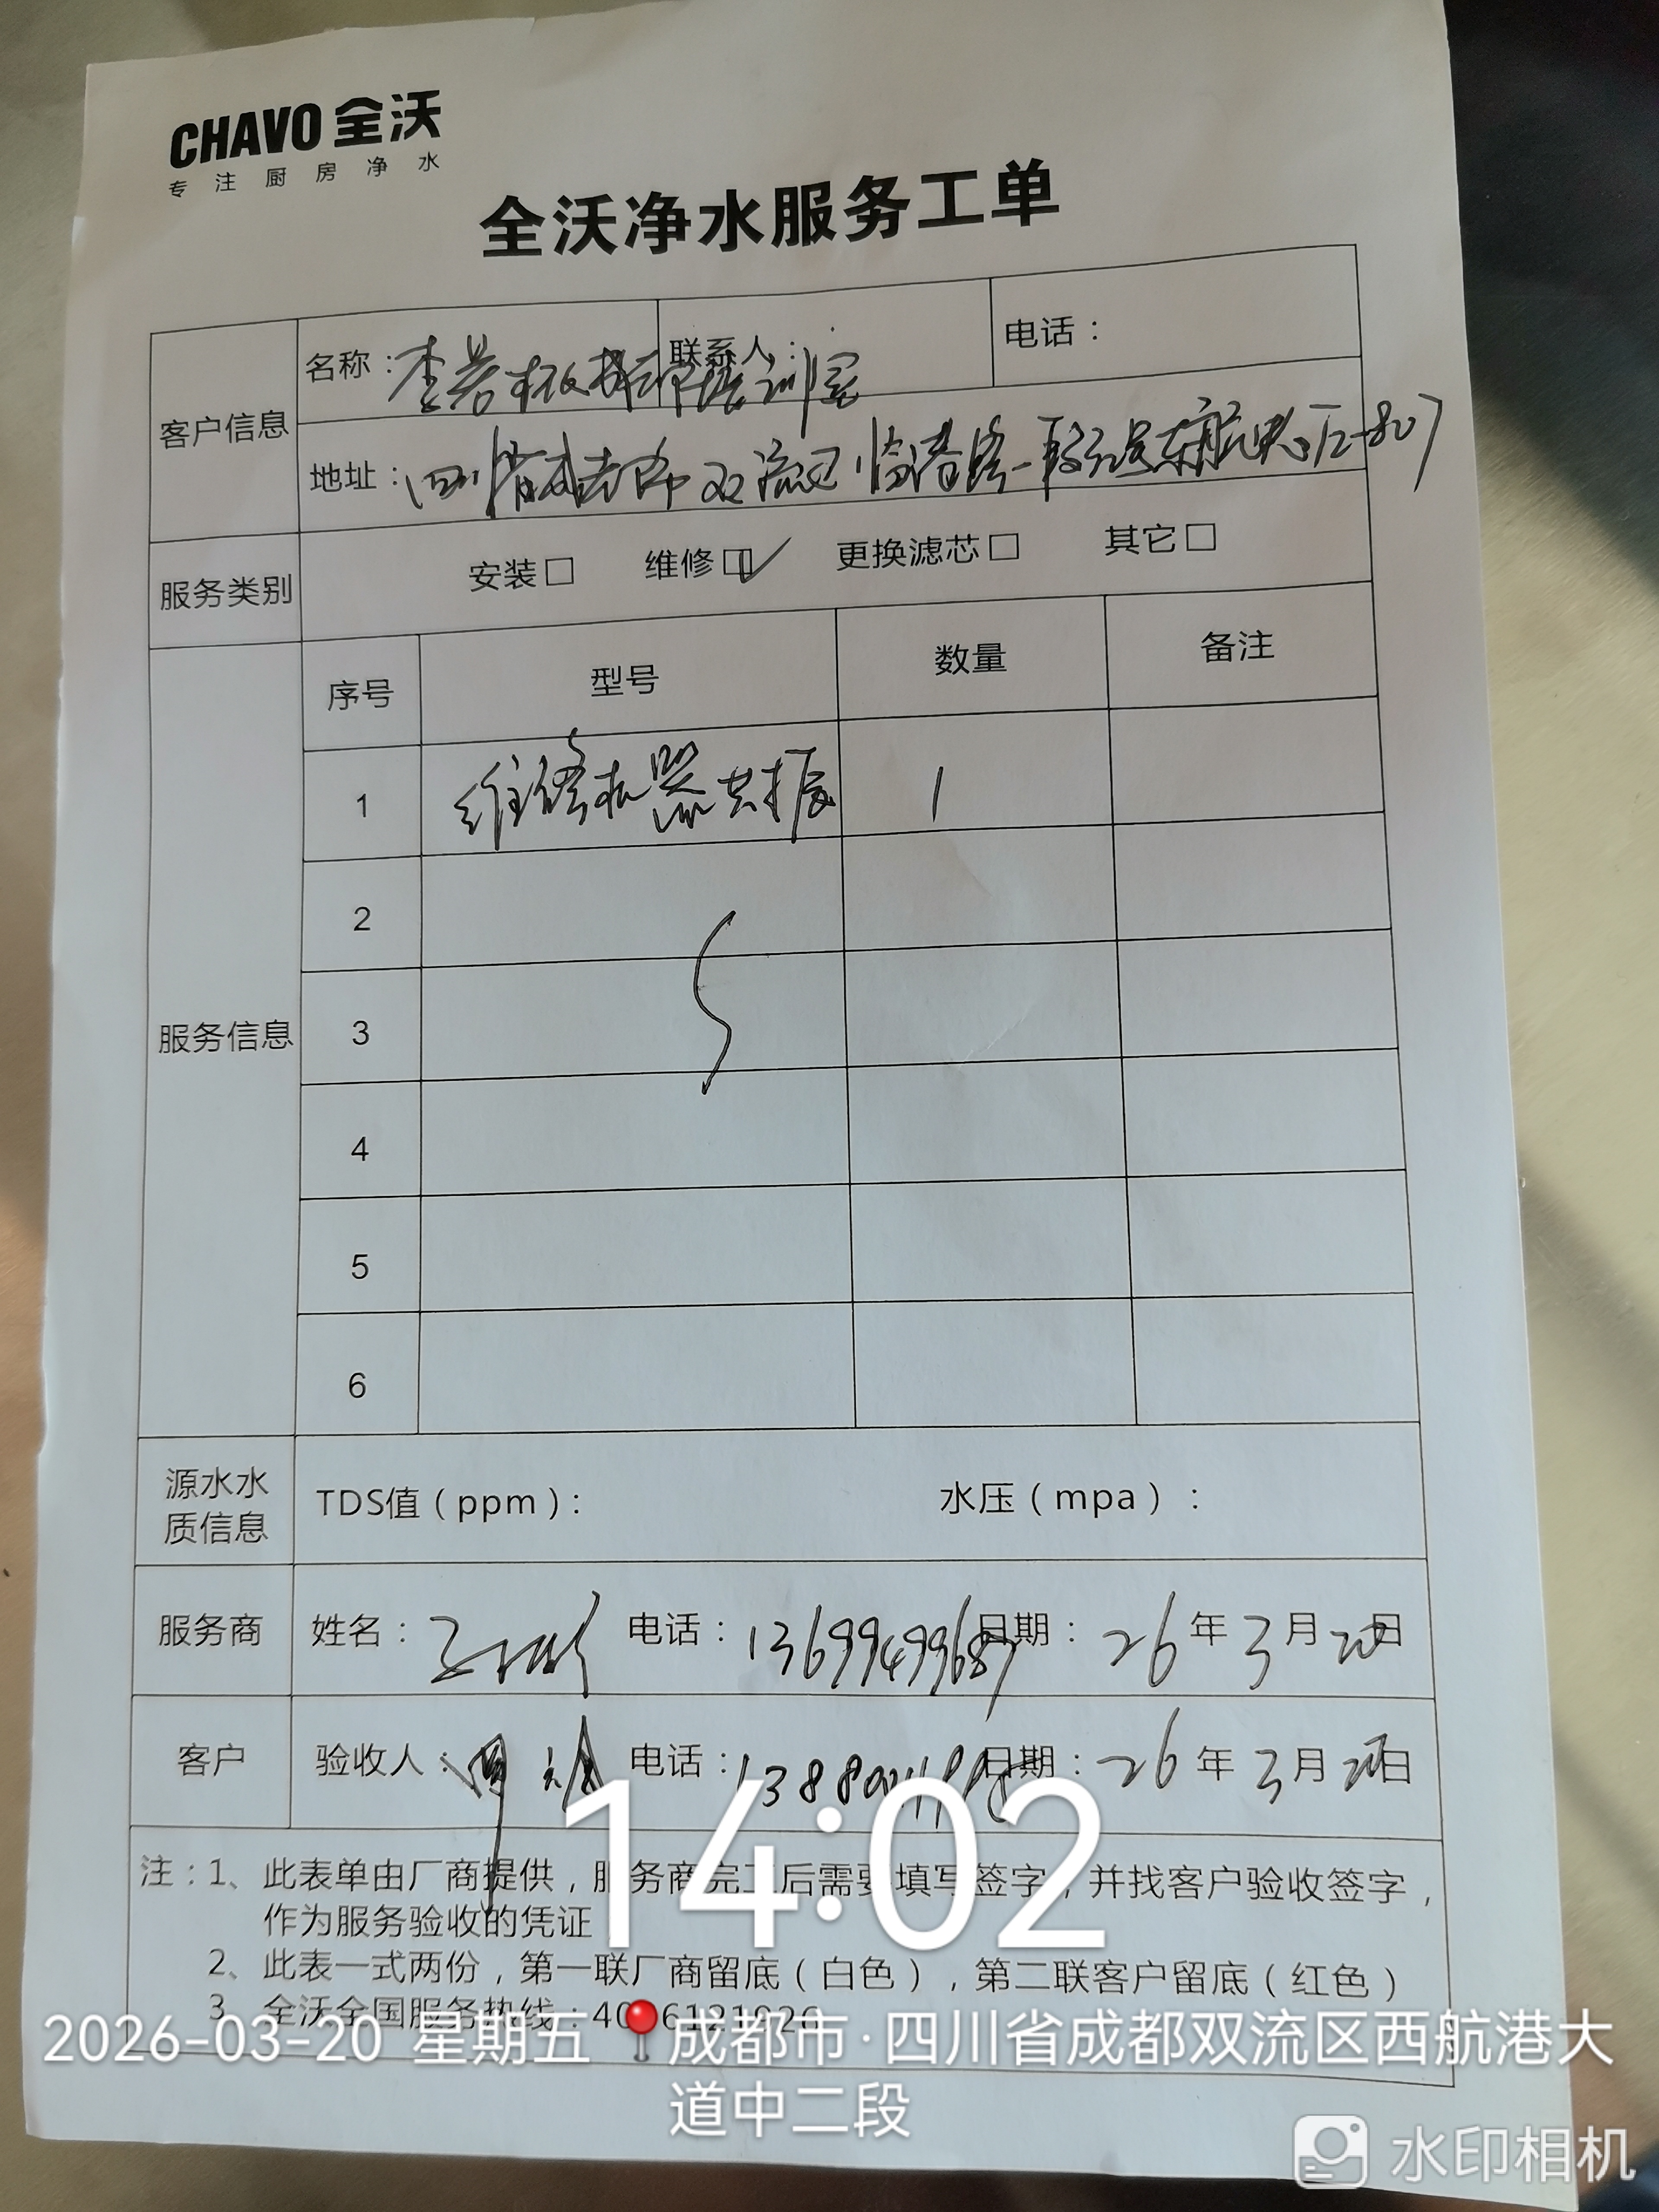 CHAVO 全沃
专注厨房净水
全沃净水服务工单
客户信息
名称： 联系人： 电话：
地址：四川省成都市双流区临港路一段 东航 -807
服务类别
安装□ 维修□✓ 更换滤芯□ 其它□
服务信息
序号 型号 数量 备注
1 维修机器共振 1
2
3
4
5
6
源水水质信息
TDS值（ppm）： 水压（mpa）：
服务商
姓名： 电话：13699499687 日期：26年3月20日
客户
验收人： 电话： 日期：26年3月20日
注：1、此表单由厂商提供，服务商完工后需要填写签字，并找客户验收签字，
作为服务验收的凭证
2、此表一式两份，第一联厂商留底（白色），第二联客户留底（红色）
3、全沃全国服务热线：4006121926
14:02
2026-03-20 星期五 成都市·四川省成都双流区西航港大
道中二段
水印相机